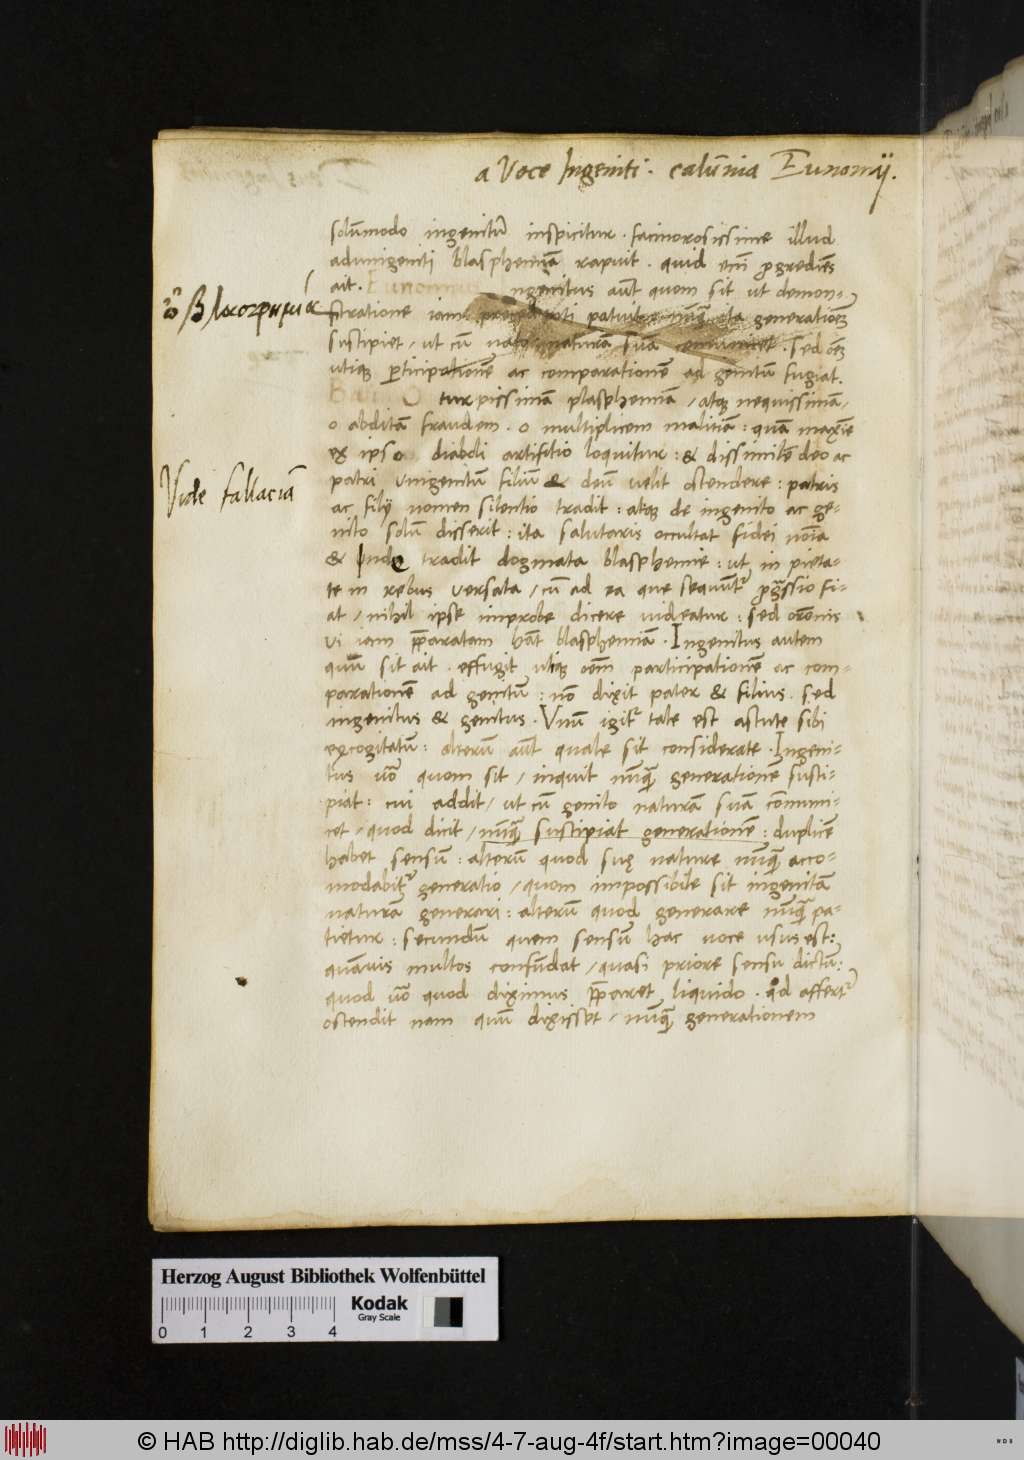 a Voce Ingeniti. calūnia Eunomij.
solūmodo ingenitū inspicitur. facinorosissime illud
adunigeniti blasphemiā rapuit. quid enī ꝓgrediēs
ait. Eunomius ngenitus aūt quom sit ut demon-
stratione iam patuit nūꝗ ita generationē
suscipiet, ut cū naturā suā communicet. sed oēm
utiqꝫ ꝑticipationē ac comparationē ad genitū fugiat.
O turpissimā plasphemiā, atqꝫ nequissimā,
o abditā fraudem. o multiplicem malitiā: quā maxīe
ex ipso diaboli artifitio loquitur: & dissimilē deo ac
Vide fallaciā
patri unigenitū filiū & deū velit ostendere: patris
ac filij nomen silentio tradit: atqꝫ de ingenito ac ge-
nito solū disserit: ita salutaris occultat fidei noīa
& Inde tradit dogmata blasphemie: ut in pieta-
te in rebus versata, cū ad ea que sequūtʳ ꝓgressio fi-
at, nihil ipse improbe dicere videatur: sed oronis
vi iam p̄paratam hāt blasphemiā. Ingenitus autem
quū sit ait. effugit utiqꝫ oēm participationē ac com-
parationē ad genitū: nō dixit pater & filius. sed
ingenitus & genitus. Vnū igitʳ tale est astute sibi
excogitatū: alterū aūt quale sit considerate. Ingeni-
tus u͞o quom sit, inquit nūꝗ generationē susci-
piat: cui addit, ut cū genito naturā suā cōmuni-
cet, quod dicit, nūꝗ suscipiat generationē: duplicē
habet sensū: alterū quod suę nature nūꝗ acco-
modabitʳ generatio, quom impossibile sit ingenitā
naturā generari: alterū quod generare nūꝗ pa-
tietur: secundū quem sensū hac voce usus est:
quāuis multos confūdat, quasi priore sensu dictū:
quod u͞o quod diximus p̄paret liquido. qd affertʳ
ostendit nam quū dixisset, nūꝗ generationem
Herzog August Bibliothek Wolfenbüttel
Kodak
Gray Scale
0 1 2 3 4
© HAB http://diglib.hab.de/mss/4-7-aug-4f/start.htm?image=00040